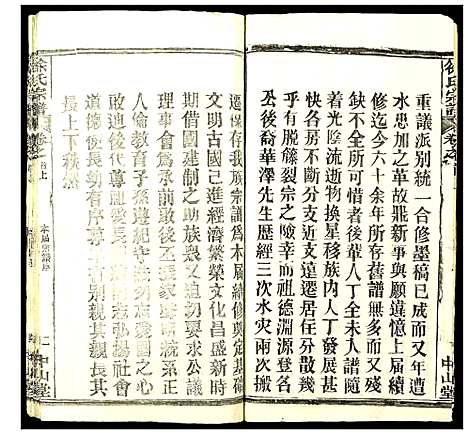 徐氏宗譜
卷之首上
重議派別統一合修墨稿已成而又年遭
水患加之革故鼎新事與願違憶上屆續
修迄今六十余年所存舊譜無多而又殘
缺不全所可惜者後輩人丁全未入譜回
着光陰流逝物換星移族內人丁發展甚
快支房不斷分支近支遠遷居住分散幾
乎有服殘裂宗之險幸而祖德淵源登在
公後裔華澤先生歷經三次水灾兩次搬
中山堂
遷保存我族宗譜爲本屆續修奠定基礎
文明古國已進經濟繁榮文化昌盛新時
期借力國制建設大潮族衆又迫切要求公議
理事會爲承前啟後之張家歸統系正
人倫教育子孫遵紀守法勿忘愛國之心
敢迪後代尊祖愛長立志弘揚
道德侯長幼有序尊卑有別親其親長其
長上下秩然
徐氏宗譜
卷之首上
本屆宗譜序
二
中山堂